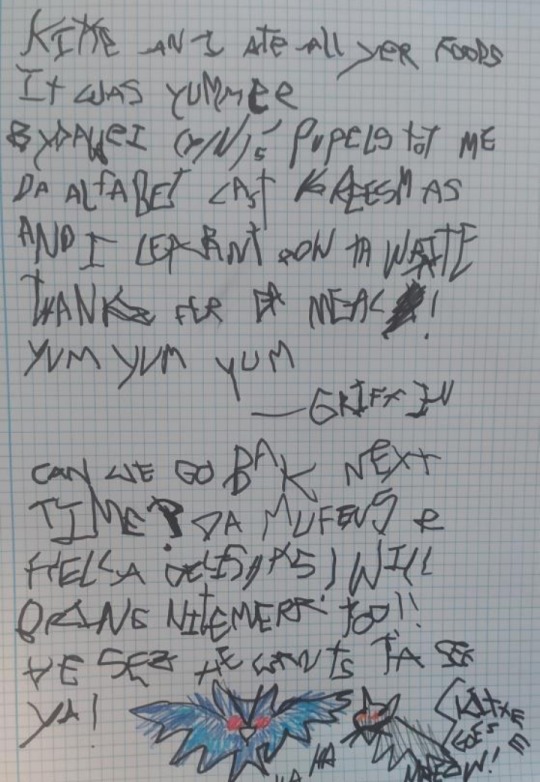 KITTE AN I ATE All yER FOODS
IT WAS YUMMEE
(Y/N)'s PUPELS tOT ME
DA ALFABET LAST
AND I LEARNT HOW TA WRITE
THANKS FER DA MEAL !
YUM YUM YUM
— GRIFXIN
CAN WE GO BAK NEXT
TIME? DA MUFENS R
HELLA I WILL
BRING NITEMERE TOO!!
HE SEZ HE WANTS TA SEE
YA!
HA HA
KITTE
GOES
MREOW!